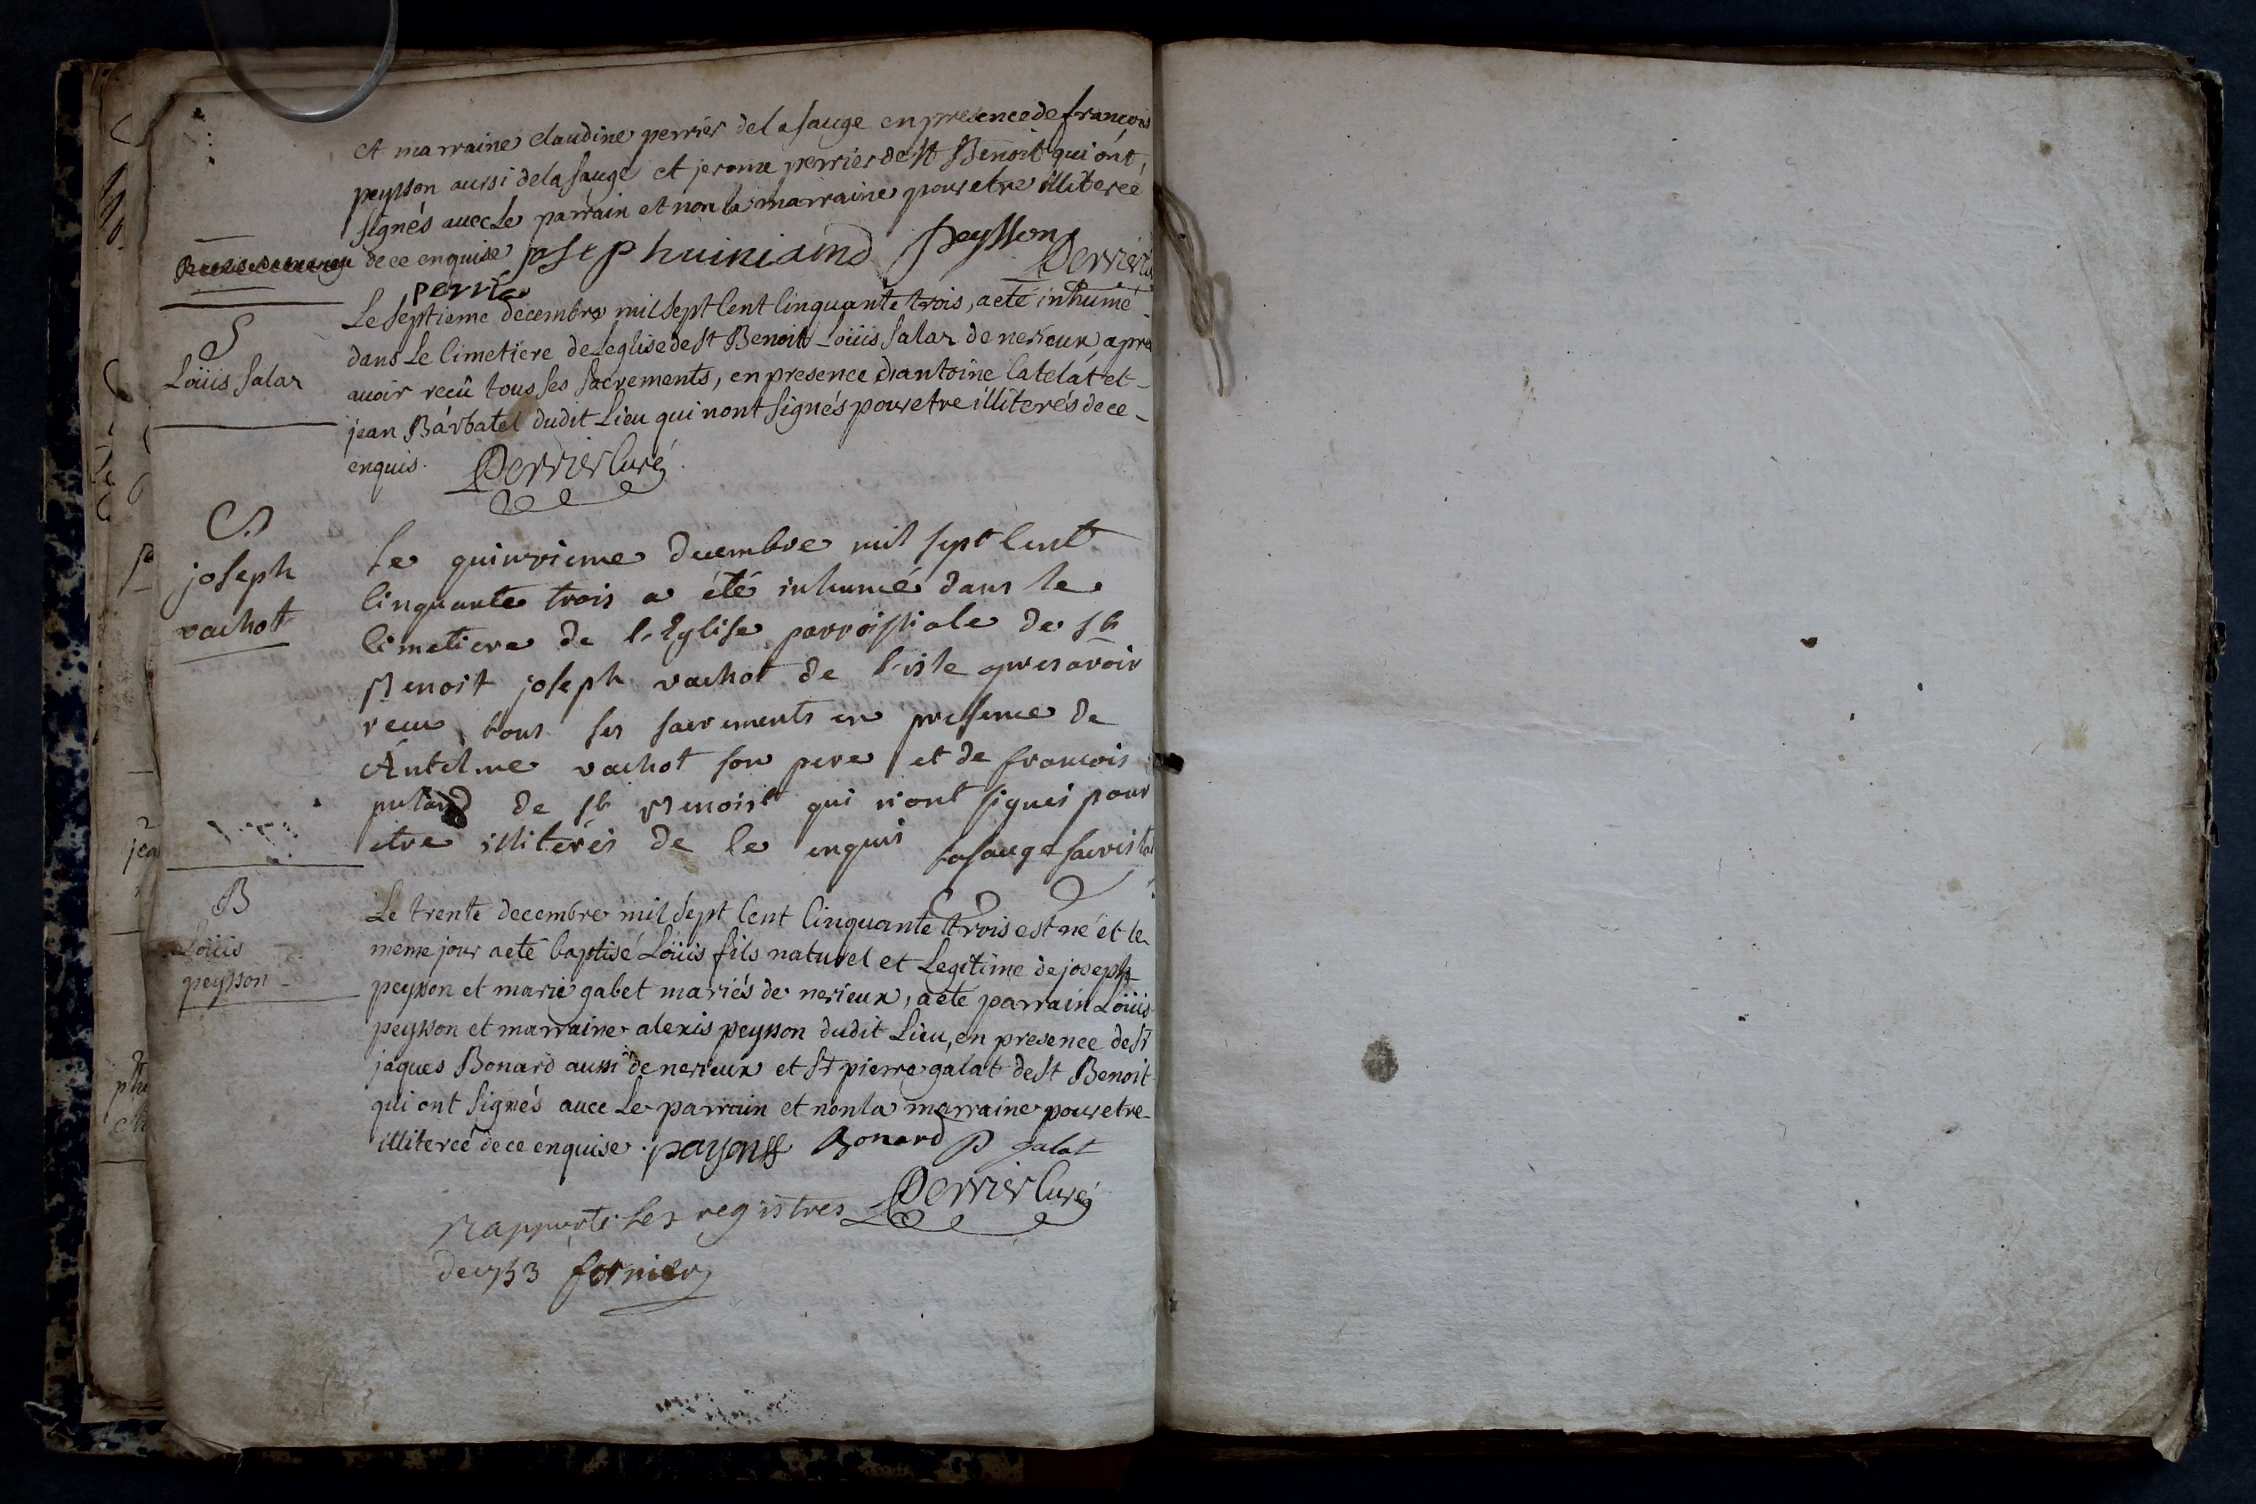 et marraine claudine perrier de la sauge en presence de françois
peysson aussi de la sauge et jerome perrier de st Benoit qui ont
signés avec Le parrain et non la marraine pour etre illiterée
de ce enquise joseph huiniamd peysson Perrier
perrier
S
Loüis Salar
Le septieme decembre mil sept Cent Cinquante trois, a eté inhumé
dans Le Cimetiere de Leglise de st Benoit Loüis Salar de nerieux apres
avoir reçû tous ses sacrements, en presence d'antoine Catelat et
jean Barbatel dudit Lieu qui n'ont signés pour etre illiterés de ce
enquis. Perrier Curé
S
joseph
vachot
Le quinzieme decembre mil sept Cent
Cinquante trois a été inhumé dans le
Cimetiere de l'Eglise parroissiale de st
Benoit joseph vachot de l'isle apres avoir
receu tous ses sacrements en presence de
Antelme vachot son pere et de françois
de st Benoist qui n'ont signés pour
etre illiterés de Ce enquis Lasauge sacristain
B
Loüis
peysson
Le trente decembre mil sept Cent Cinquante trois est né et le
meme jour a eté baptisé Loüis fils naturel et Legitime de joseph
peysson et marie gabet mariés de nerieux, a eté parrain Loüis
peysson et marraine alexis peysson dudit Lieu, en presence de sr
jaques Bonard aussi de nerieux et sr pierre galat de st Benoit
qui ont signés avec Le parrain et non la marraine pour etre
illiterée de ce enquise. Bonard P galat
Perrier Curé
Rapporté les registres
de 1753 fornier